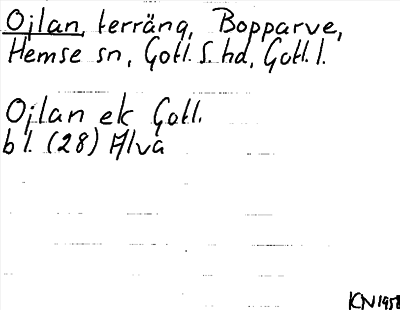 Ojlan, terräng, Bopparve,
Hemse sn, Gotl. S. hd, Gotl. l.
Ojlan ek Gotl.
bl. (28) Alva
KN 1958